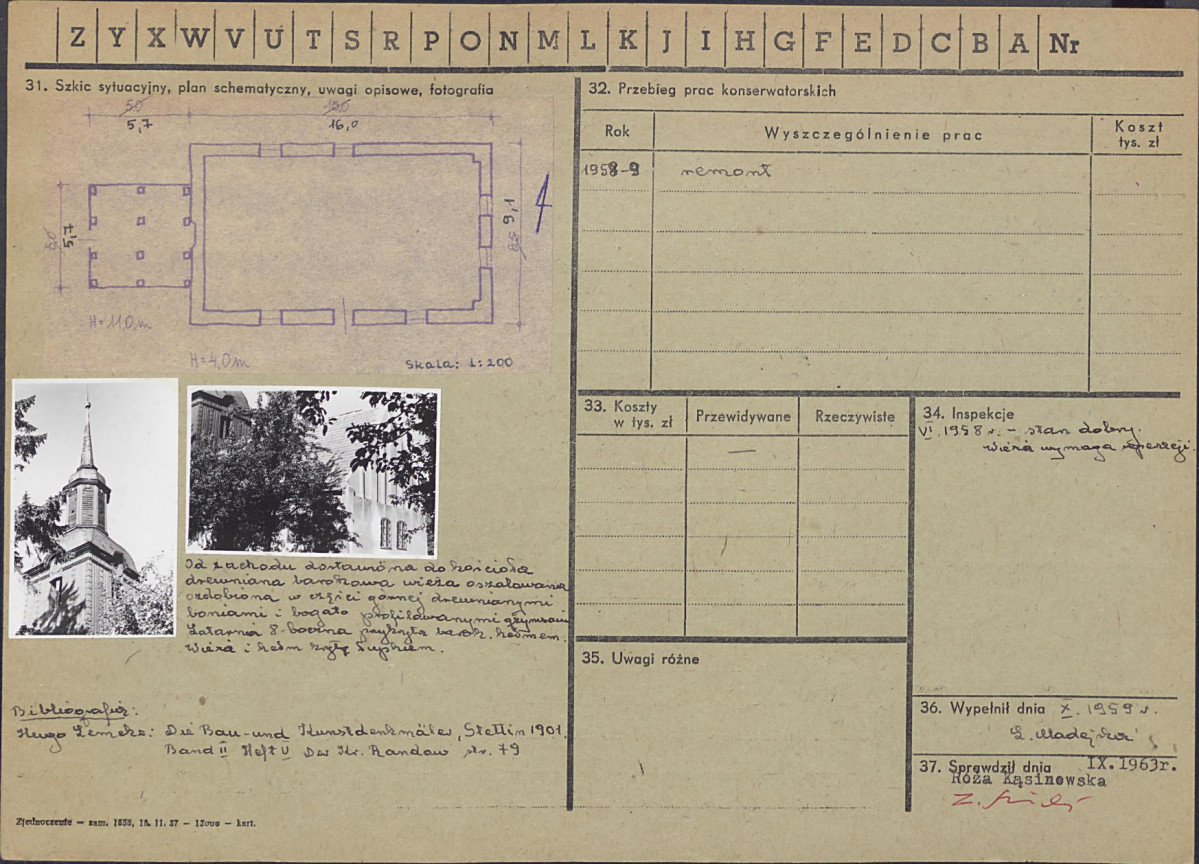 Z Y X W V U T S R P O N M L K J I H G F E D C B A Nr
31. Szkic sytuacyjny, plan schematyczny, uwagi opisowe, fotografia
50 180
5,7 16,0
50
5,7
9,1
85
H=11,0m
H=4,0m
Skala: 1:200
Od zachodu dostawiona do kościoła
drewniana barokowa wieża oszalowana
ozdobiona w części górnej drewnianymi
boniami i bogato profilowanymi gzymsami
Latarnia 8-boczna przykryta barok. hełmem.
Wieża i hełm kryte łupkiem.
Bibliografia:
Hugo Lemcke: Die Bau-und Kunstdenkmäler, Stettin 1901.
Band II Heft V Der Kr. Randow str. 79
Zjednoczenie — zam. 1558, 15. 11. 57 — 12000 — kart.
32. Przebieg prac konserwatorskich
Rok Wyszczególnienie prac Koszt tys. zł
1958-9 remont
33. Koszty w tys. zł Przewidywane Rzeczywiste
—
34. Inspekcje
VI 1958 r. – stan dobry.
wieża wymaga
35. Uwagi różne
36. Wypełnił dnia X. 1959 r.
37. Sprawdził dnia IX.1963r.
Róża Kąsinowska